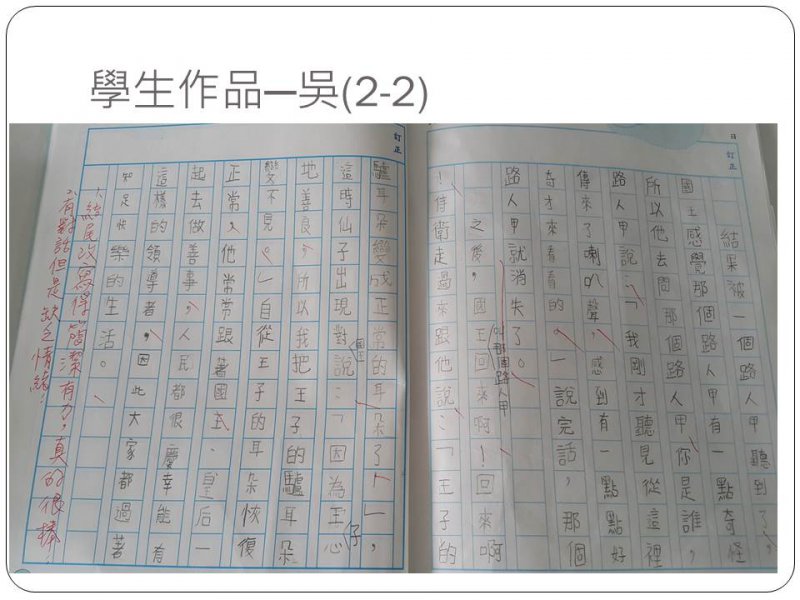 學生作品—吳(2-2)
日
訂正
結果被一個路人甲聽到了，
國王感覺那個路人甲有一點奇怪
所以他去問那個路人甲你是誰，
路人甲說：「我剛才聽見從這裡
傳來了喇叭聲，感到有一點點好
奇才來看看的。」說完話，那個
路人甲就消失了。
之後，國王回來啊！回來啊
叫那個路人甲
！侍衛走過來跟他說：「王子的
訂正
驢耳朵變成正常的耳朵了！」，
這時仙子出現對說：「因為王心
國王
仔
地善良，所以我把王子的驢耳朵
變不見。」自從王子的耳朵恢復
正常，他常常跟著國王、皇后一
起去做善事，人民都很慶幸能有
這樣的領導者，因此大家都過著
知足快樂的生活。
1.結尾改寫得簡潔有力，真的很棒！
2.有對話但是缺乏情緒！